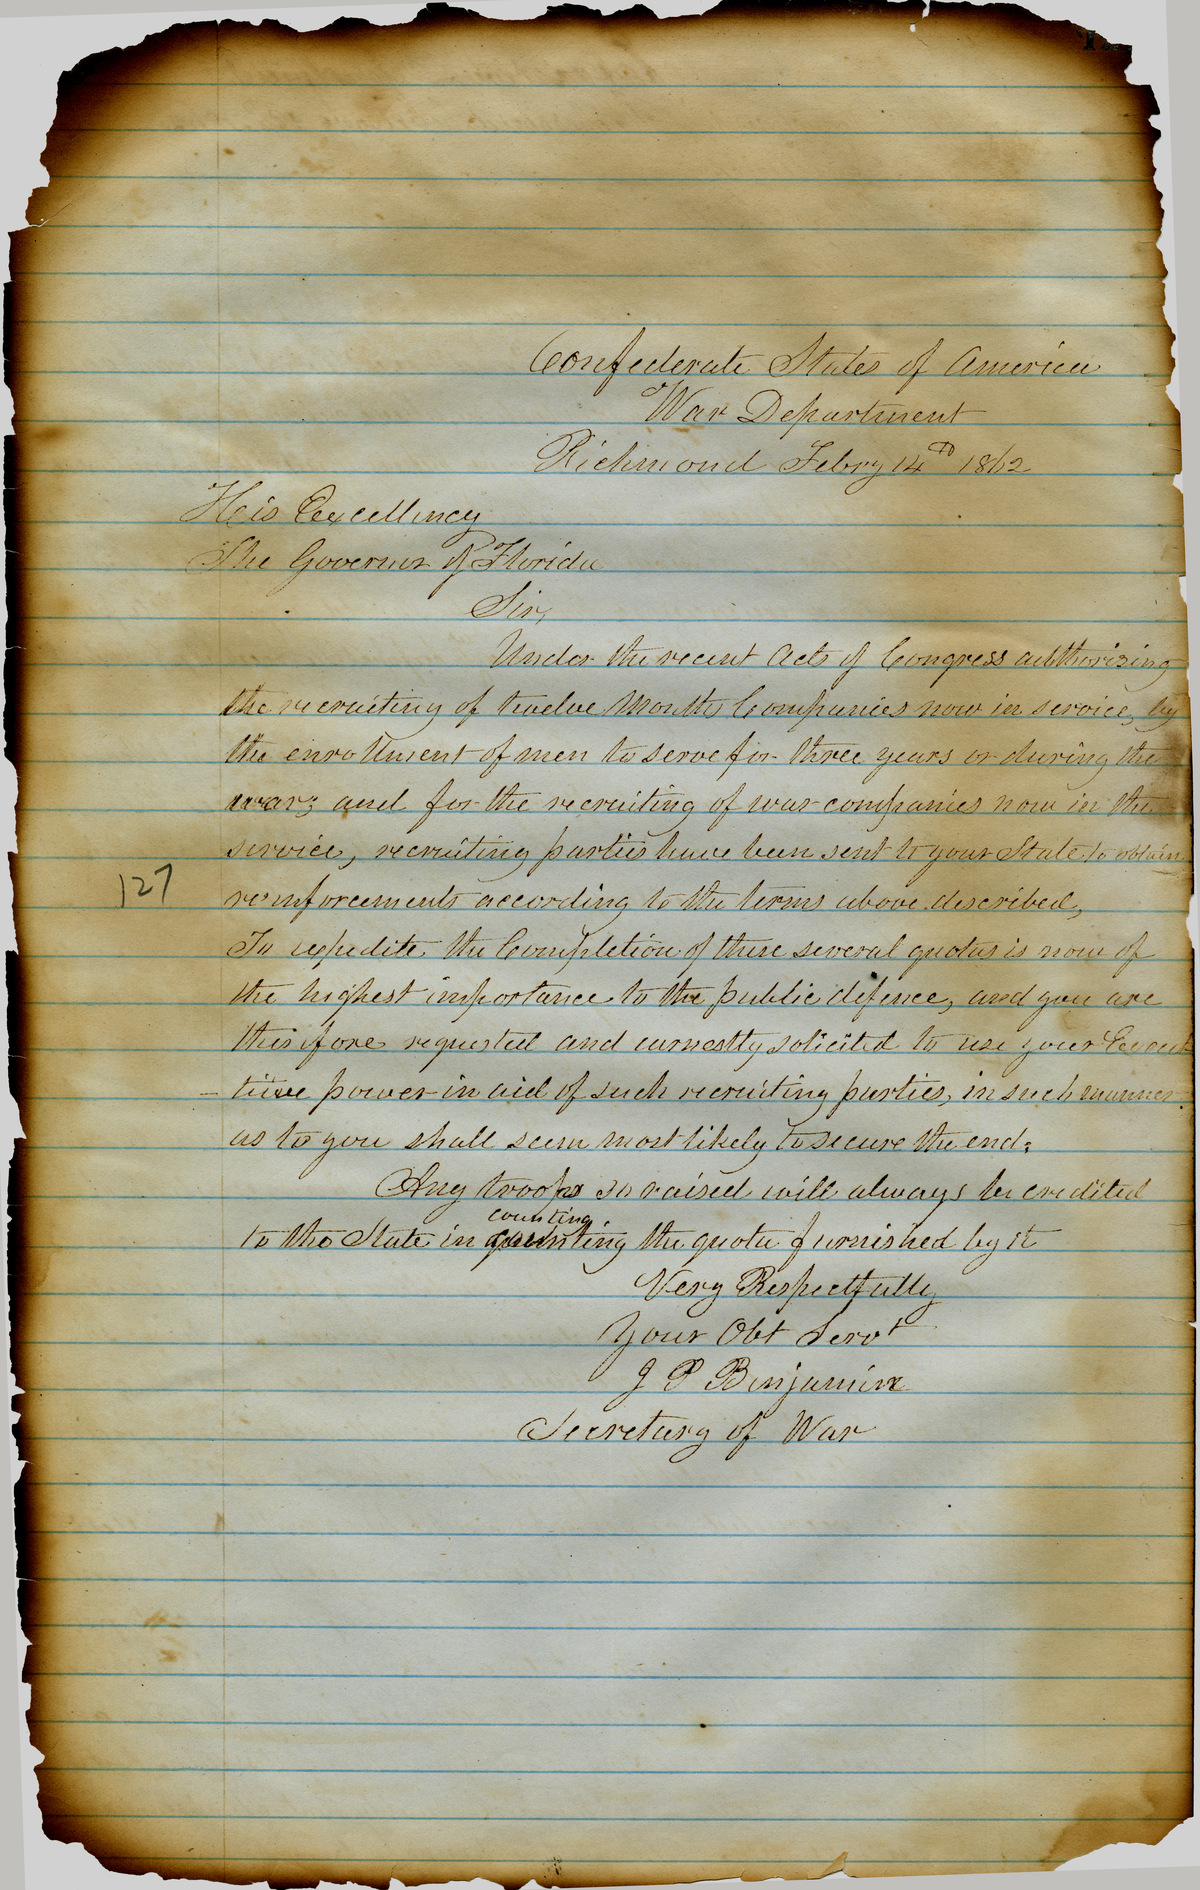 Confederate States of America
War Department
Richmond Febry 14th 1862
His Excellency
The Governor of Florida
Sir,
Under the recent Acts of Congress authorizing
the recruiting of twelve Months Companies now in service, by
the enrollment of men to serve for three years or during the
war; and for the recruiting of war companies now in the
service, recruiting parties have been sent to your State to obtain
reinforcements according to the terms above described,
To expedite the Completion of these several quotas is now of
the highest importance to the public defence, and you are
therefore requested and earnestly solicited to use your Execut
-tive power in aid of such recruiting parties, in such manner
as to you shall seem most likely to secure the end;
127
Any troops so raised will always be credited
counting
to the State in counting the quota furnished by it
Very Respectfully
Your Obt Servt
J P Benjamin
Secretary of War